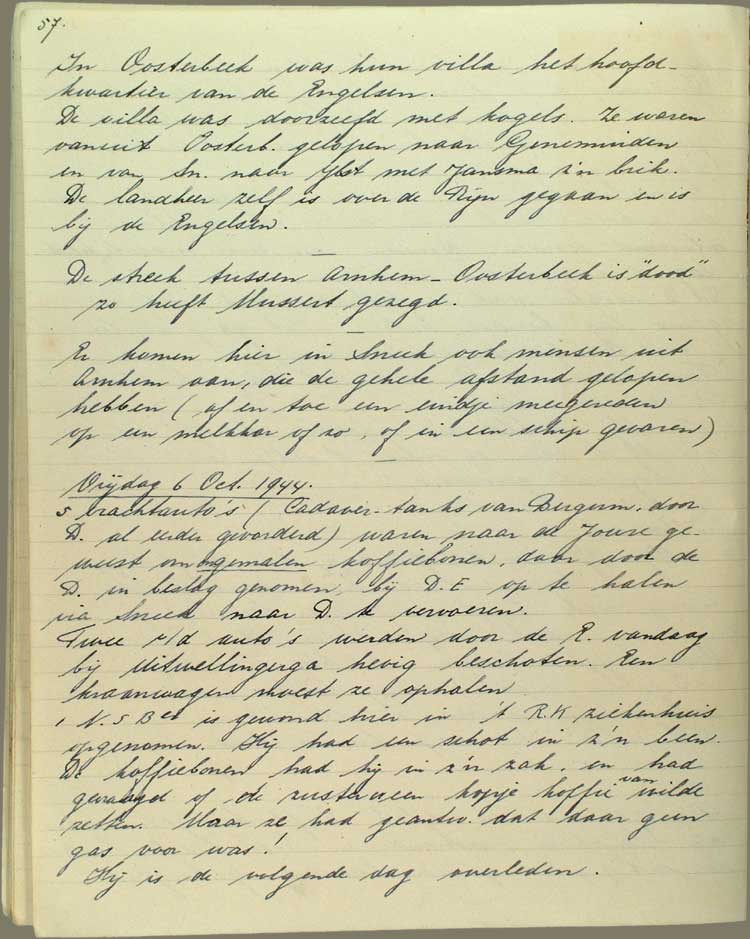 57.
In Oosterbeek was hun villa het hoofd-
kwartier van de Engelsen.
De villa was doorzeefd met kogels. Ze waren
vanuit Oosterb. gelopen naar Genemuiden
en van Sn. naar IJlst met Jansma z'n brik.
De landheer zelf is over de Rijn gegaan en is
bij de Engelsen.
De streek tussen Arnhem - Oosterbeek is "dood"
zo heeft Mussert gezegd.
Er komen hier in Sneek ook mensen uit
Arnhem aan, die de gehele afstand gelopen
hebben (af en toe een eindje meegereden
op een melkkar of zo, of in een schip gevaren)
Vrijdag 6 Oct. 1944.
5 vrachtauto's (Cadaver-tanks van Bergum, door
D. al eerder gevorderd) waren naar de Joure ge-
weest om ongemalen koffiebonen, daar door de
D. in beslag genomen, bij D.E op te halen
via Sneek naar D. te vervoeren.
Twee v/d auto's werden door de E. vandaag
bij Uitwellingerga hevig beschoten. Een
kraanwagen moest ze ophalen
1 N.S.Ber is gewond hier in 't R.K ziekenhuis
opgenomen. Hij had een schot in z'n been.
De koffiebonen had hij in z'n zak, en had
gevraagd of de zuster een kopje koffie van wilde
zetten. Maar ze had geantw. dat daar geen
gas voor was!
Hij is de volgende dag overleden.